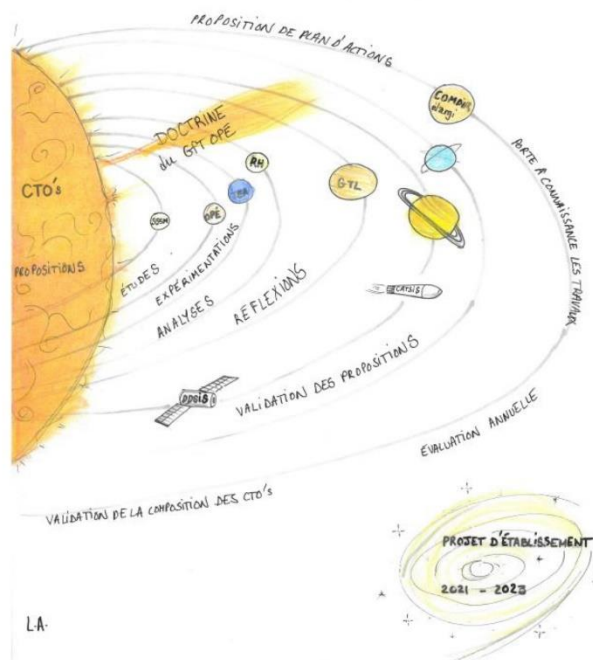 PROPOSITION DE PLAN D'ACTIONS
COMDER
PORTE À CONNAISSANCE LES TRAVAUX
DOCTRINE
du GPT OPÉ
RH
GTL
CTO's
SSSM
OPÉ
PROPOSITIONS
ÉTUDES
EXPÉRIMENTATIONS
ANALYSES
RÉFLEXIONS
CATSIS
DDSIS
VALIDATION DES PROPOSITIONS
ÉVALUATION ANNUELLE
VALIDATION DE LA COMPOSITION DES CTO's
PROJET D'ÉTABLISSEMENT
2021 - 2023
L.A.